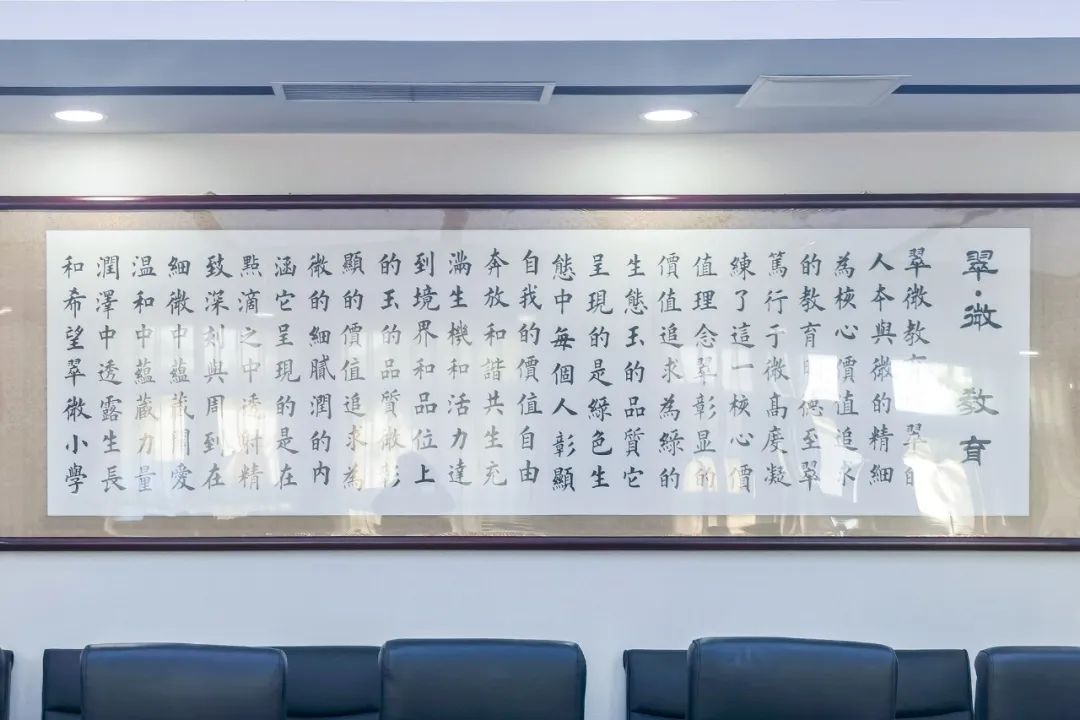 翠·微 教育
翠微教育翠的
人本與微的精細
為核心價值追求
的教育明德至翠
篤行于微高慶凝
練了這一核心價
值理念翠彰显的
價值追求為綠的
生態玉的品質它
呈現的是綠色生
態中每個人彰顯
自我的價值自由
奔放和諧共生充
滿生機和活力達
到境界和品位上
的玉的品質微彰
顯的價值追求為
微的細膩潤的內
涵它呈現的是在
點滴之中透射精
致深刻與周到在
細微中蘊藏關愛
温和中蘊藏力量
潤澤中透露生長
和希望翠微小學